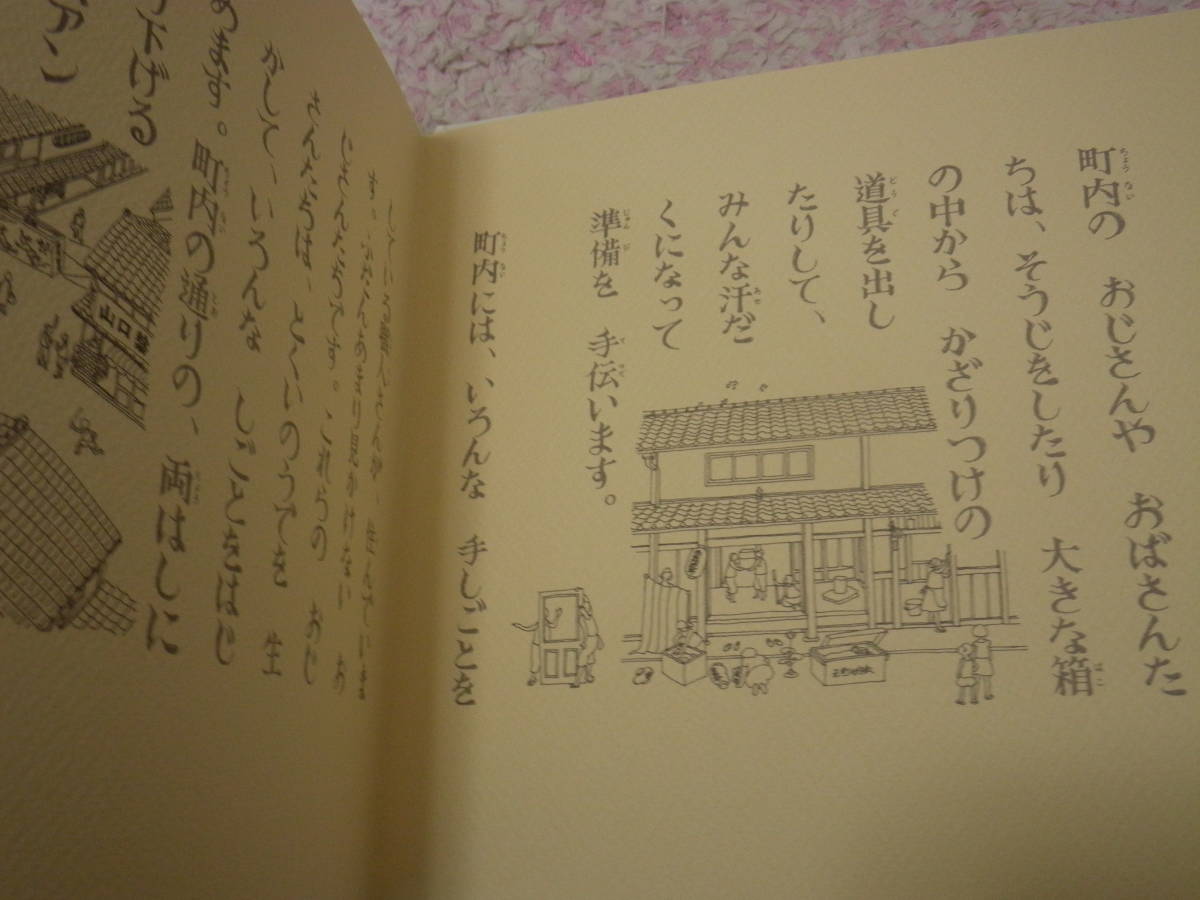 町内の おじさんや おばさんた
ちは、そうじをしたり 大きな箱
の中から かざりつけの
道具を出し
たりして、
みんな汗だ
くになって
準備を 手伝います。
町内には、いろんな 手しごとを
している職人さんが、住んでいま
す。ふだんあまり見かけない お
じさんたちです。これらの おじ
さんたちは、とくいのうでを 生
かして、いろんな しごとをはじ
めます。町内の通りの、両はしに
下げる
アン
山口